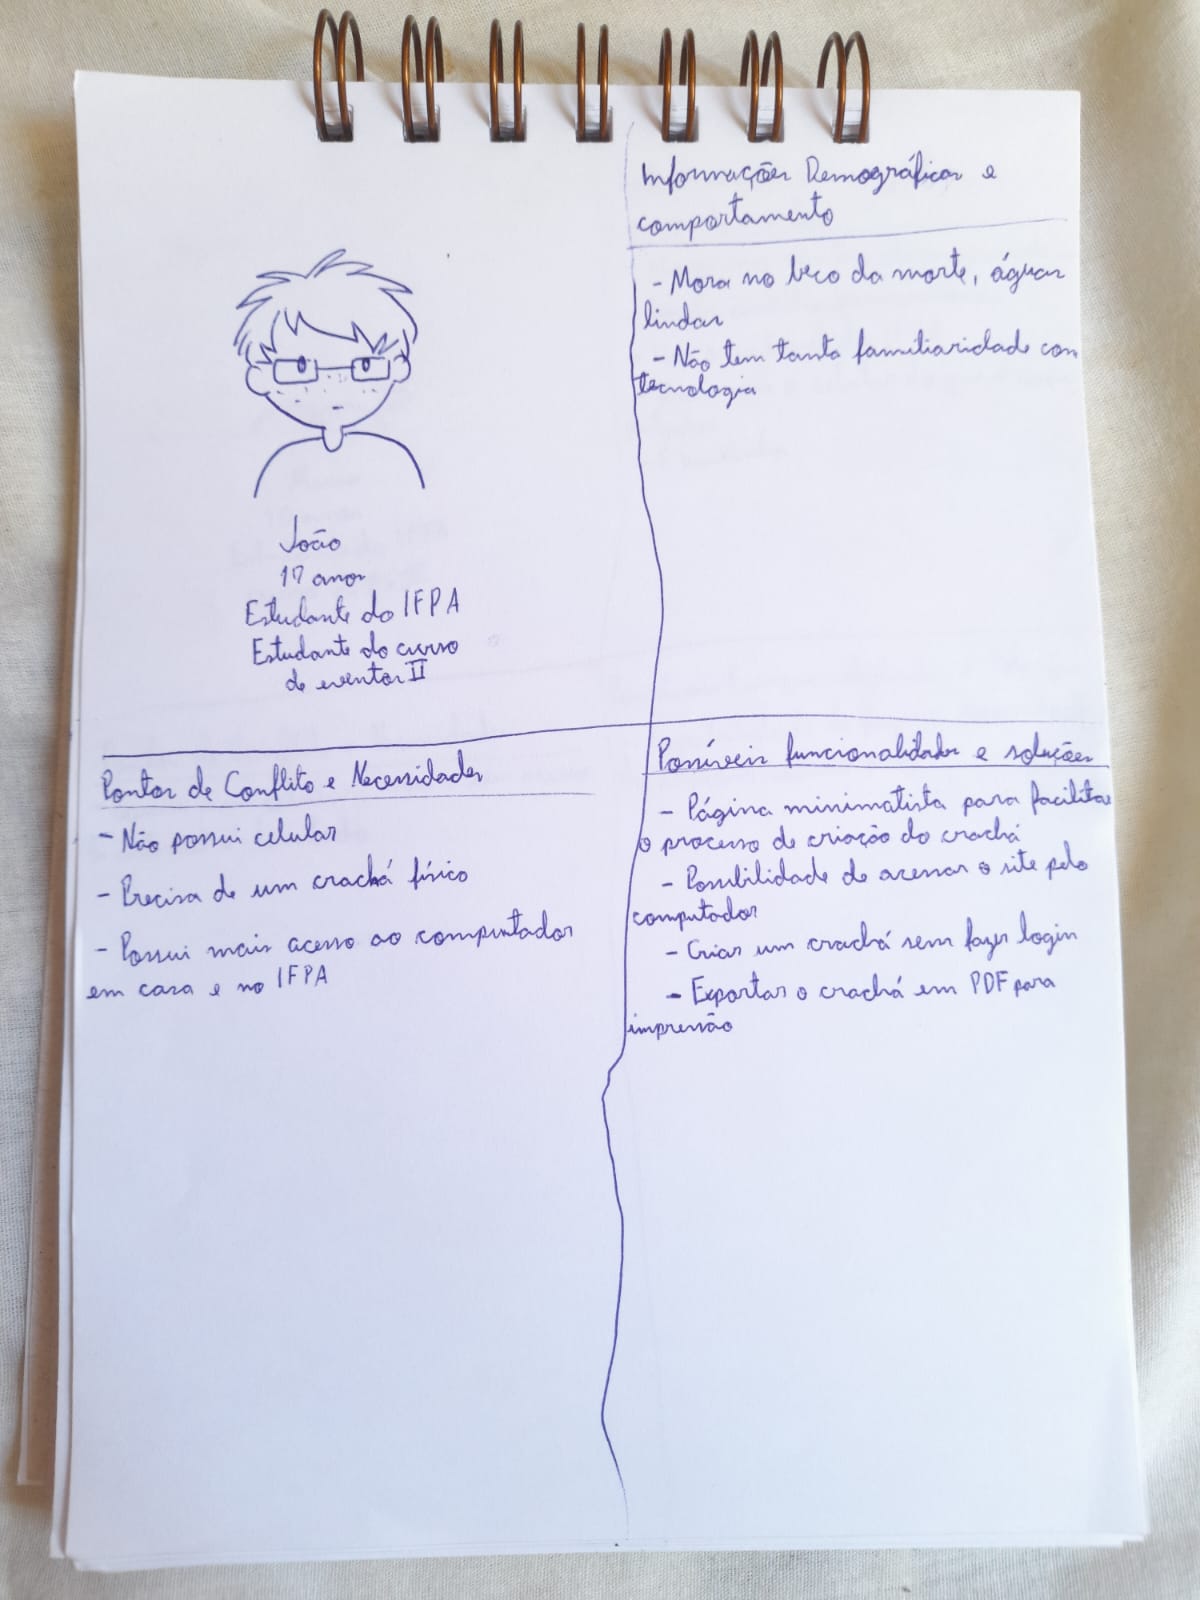 João
17 anos
Estudante do IFPA
Estudante do curso
de eventos II
Informações Demográficas e
comportamento
- Mora no beco da morte, águas
lindas
- Não tem tanta familiaridade com
tecnologia
Pontos de Conflito e Necessidades
- Não possui celular
- Precisa de um crachá físico
- Possui mais acesso ao computador
em casa e no IFPA
Possíveis funcionalidades e soluções
- Página minimalista para facilitar
o processo de criação do crachá
- Possibilidade de acessar o site pelo
computador
- Criar um crachá sem fazer login
- Exportar o crachá em PDF para
impressão